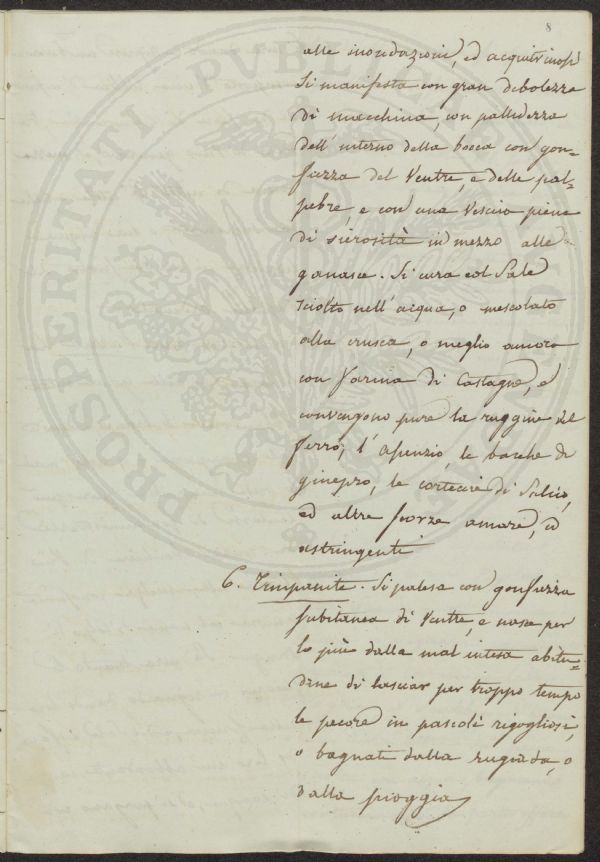 8
alle inondazioni, ed acquitrinosi
Si manifesta con gran debolezza
di macchina, con pallidezza
dell'interno della bocca con gon=
fiezza del Ventre, e delle pal=
pebre, e con una Vescica piena
di sierosità in mezzo alle
ganasce. Si cura col Sale
sciolto nell'acqua, o mescolato
alla crusca, o meglio ancora
con farina di Castagne, e
convengono pure la ruggine del
ferro, l'assenzio, le bacche di
ginepro, le cortecce di Salcio,
ed altre scorze amare, ed
astringenti
6. Timpanite. Si palesa con gonfiezza
subitanea di Ventre, e nasce per
lo più dalla mal intesa abitu=
dine di lasciar per troppo tempo
le pecore in pascoli rigogliosi,
o bagnati dalla rugiada, o
dalla pioggia
PROSPERITATI PVBLICAE